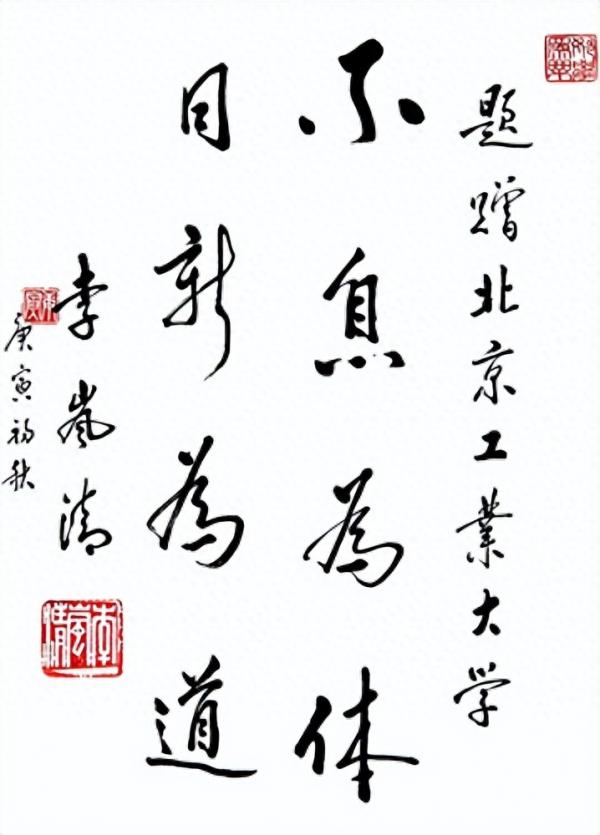 題贈北京工業大学
不息為体
日新為道
李嵐清
庚寅初秋
庚寅
李嵐清